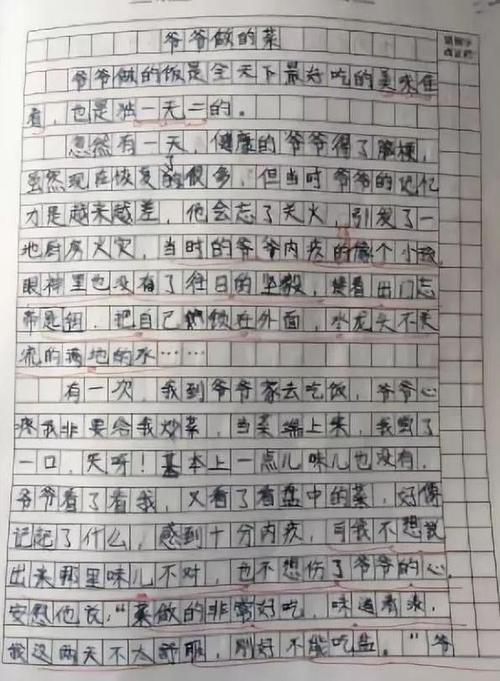 爷爷做的菜
爷爷做的饭是全天下最好吃的美味佳
肴，也是独一无二的。
忽然有一天，健康的爷爷得了脑梗，
虽然现在恢复了的很多，但当时爷爷的记忆
力是越来越差，他会忘了关火，引发了一
地厨房火灾，当时的爷爷内疚的像个小孩
眼神里也没有了往日的坚毅，接着出门忘
带匙钥，把自己锁在外面，水龙头不关
流的满地的水……
有一次，我到爷爷家去吃饭，爷爷心
疼我非要给我炒菜，当菜端上来，我尝了
一口，天呀！基本上一点儿味儿也没有，
爷爷看了看我，又看了看盘中的菜，好像
记起了什么，感到十分内疚，可我不想说
出来那里味儿不对，也不想伤了爷爷的心，
安慰他说：“菜做的非常好吃，味道
我这两天不太舒服，刚好不能吃盐。”爷